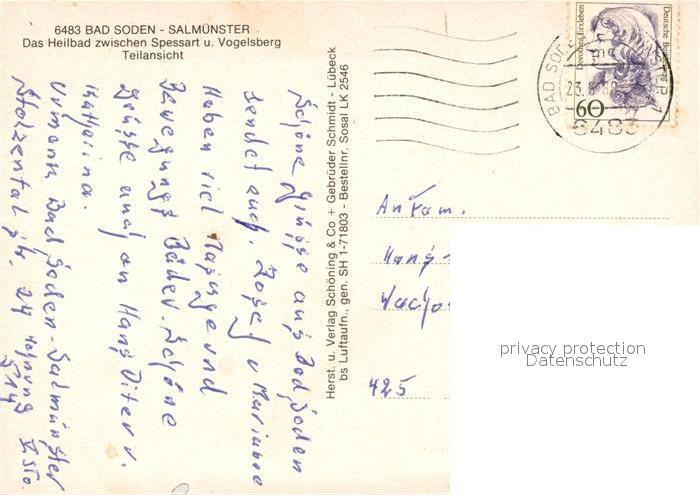 6483 BAD SODEN - SALMÜNSTER
Das Heilbad zwischen Spessart u. Vogelsberg
Teilansicht
Schöne Grüsse aus Bad Soden
sendet euch. Josef u Marianne
Haben viel Massage und
Bewegungs Bäder. Schöne
Grüsse auch an Hans Diter u.
Katharina.
Urmann Bad Soden-Salmünster
Stolzental str. 24
514
Herst. u. Verlag Schöning & Co + Gebrüder Schmidt - Lübeck
bs Luftaufn., gen. SH 1-71803 - Bestellnr. Sosal LK 2546
Dorothea Erxleben
Deutsche
60
BAD SODEN
23.
6483
An Fam.
Hans
425
privacy protection
Datenschutz